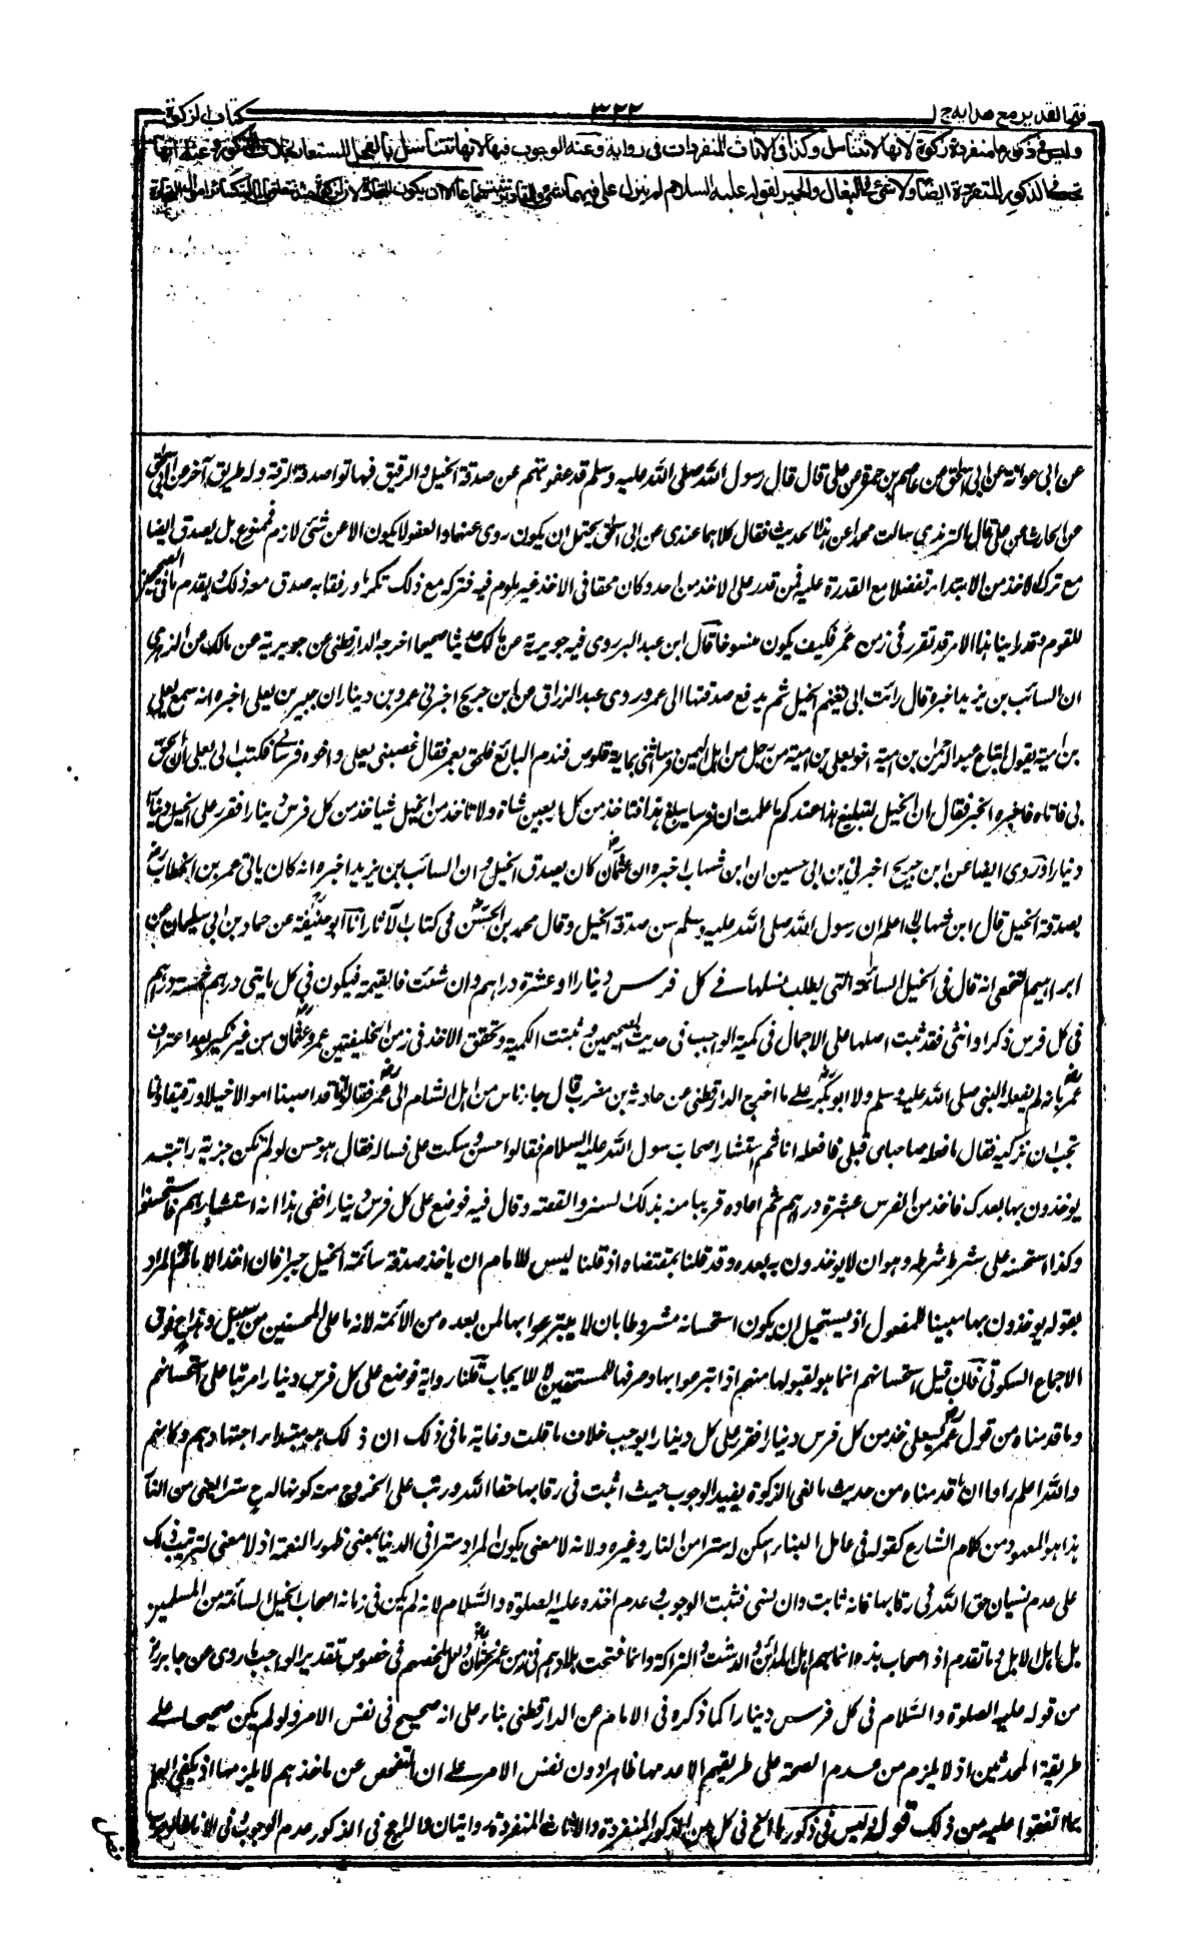 فتح القدير مع هدايه ج ١ ٣٢٢ كتاب الزكوة
وليس في ذكورها منفردة زكوة لانها لا تتناسل وكذا في الاناث المنفردات في رواية وعنه الوجوب فيها لانها تتناسل بالفحل المستعار بخلاف الذكور وعنه انها
تجب في الذكور المنفردة ايضا ولا شئ في البغال والحمير لقوله عليه السلام لم ينزل علي فيهما شئ والمقادير تثبت سماعا الا ان يكون للتجارة لان الزكوة حينئذ تتعلق بالمالية كسائر اموال التجارة
عن ابى عوانة عن ابى اسحق عن عاصم بن ضمرة عن على قال قال رسول الله صلى الله عليه وسلم قد عفوت لكم عن صدقة الخيل والرقيق فهاتوا صدقة الرقة وله طريق آخر عن ابى اسحق
عن الحارث عن على قال الترمذي سالت محمدا عن هذا الحديث فقال كلاهما عندى عن ابى اسحق يحتمل ان يكون روى عنهما والعفو لا يكون الا عن شئ لازم فممنوع بل يصدق ايضا
مع ترك الاخذ من الابتداء تفضلا مع القدرة عليه فمن قدر على الاخذ من احد وكان محقا فى الاخذ غير ملوم فيه فتركه مع ذلك تكرما ورفقا به صدق معه ذلك ويقدم ما فى الصحيحين
للقوم وقد راينا هذا الامر قد تقرر فى زمن عمر فكيف يكون منسوخا قال ابن عبد البر روى فيه جويرية عن مالك حديثا صحيحا اخرجه الدارقطنى عن جويرية عن مالك عن الزهرى
ان السائب بن يزيد اخبره قال رائت ابى يقيم الخيل ثم يدفع صدقتها الى عمر وروى عبد الرزاق عن ابن جريج اخبرنى عمرو بن دينار ان جبير بن يعلى اخبره انه سمع يعلى
بن امية يقول ابتاع عبد الرحمن بن امية اخو يعلى بن امية من رجل من اهل اليمن فرسا انثى بماية قلوص فندم البائع فلحق بعمر فقال غصبنى يعلى واخوه فرسا لى فكتب الى يعلى ان الحق
بى فاتاه فاخبره الخبر فقال ان الخيل لتبلغ هذا عندكم ما علمت ان فرسا يبلغ هذا فناخذ من كل اربعين شاة ولا ناخذ من الخيل شيئا خذ من كل فرس دينارا فقرر على الخيل دينارا
دينارا وروى ايضا عن ابن جريج اخبرنى ابن ابى حسين ان ابن شهاب اخبره ان عثمان كان يصدق الخيل وان السائب بن يزيد اخبره انه كان ياتى عمر بن الخطاب
بصدقة الخيل قال ابن شهاب لا اعلم ان رسول الله صلى الله عليه وسلم سن صدقة الخيل وقال محمد بن الحسن فى كتاب الآثار انا ابو حنيفة عن حماد بن ابى سليمان عن
ابراهيم النخعى انه قال فى الخيل السائمة التى يطلب نسلها فى كل فرس دينارا او عشرة دراهم وان شئت فالقيمة فيكون فى كل مايتى درهم خمسة دراهم
فى كل فرس ذكر او انثى فقد ثبت اصلها على الاجمال فى كمية الواجب فى حديث الصحيحين وثبتت الكمية وتحقق الاخذ فى زمن الخليفتين عمر وعثمان من غير نكير بعد اعتراف
عمر بانه لم يفعله النبى صلى الله عليه وسلم ولا ابو بكر على ما اخرج الدارقطنى عن حارثة بن مضرب قال جاء ناس من اهل الشام الى عمر فقالوا انا قد اصبنا اموالا خيلا ورقيقا وانا
نحب ان نزكيه فقال ما فعله صاحباى قبلى فافعله انا ثم استشار اصحاب رسول الله عليه السلام فقالوا حسن وسكت على فساله فقال هو حسن لو لم تكن جزية راتبة
يوخذون بها بعدك فاخذ من الفرس عشرة دراهم ثم اعاده قريبا منه بذلك السند والقصة وقال فيه فوضع على كل فرس دينارا ففى هذا انه استشارهم فاستحسنوا
وكذا استحسنه على بشرط شرطه وهو ان لا يوخذون به بعده وقد قلنا بمقتضاه اذ قلنا ليس للامام ان ياخذ صدقة سائمة الخيل جبرا فان اخذ الامام هو المراد
بقوله يوخذون بها مبينا للمفعول اذ يستحيل ان يكون استحسانه مشروطا بان لا يتبرعوا بها لمن بعده من الأئمة لانه ما على المحسنين من سبيل وهذا ح فوق
الاجماع السكوتى فان قيل استحسانهم انما هو لقبولها منهم اذا تبرعوا بها وصرفها للمستحقين لا للايجاب قلنا رواية فوضع على كل فرس دينارا مرتبا على استحسانهم
وما قدمناه من قول عمر ليعلى خذ من كل فرس دينارا فقرر على كل دينارا يوجب خلاف ما قلت وغاية ما فى ذلك ان ذلك هو مبتداء اجتهادهم وكانهم
والله اعلم راوا ان ما قدمناه من حديث مانعى الزكوة يفيد الوجوب حيث اثبت فى رقابها حقا الله ورتب على الخروج منه كونها له ح سترا يعنى من النار
هذا هو المعهود من كلام الشارع كقوله فى عامل البنات كن له سترا من النار وغيره ولانه لا معنى لكون المراد سترا فى الدنيا بمعنى ظهور النعمة اذ لا معنى لترتيب ذلك
على عدم نسيان حق الله فى رقابها فانه ثابت وان نسى فثبت الوجوب وعدم اخذه عليه الصلوة والسلام لانه لم يكن فى زمانه اصحاب الخيل السائمة من المسلمين
بل اهل الابل وما تقدم اذ اصحاب هذه انما هم اهل المدائن والدشت والتراكمة وانما فتحت بلادهم فى زمن عمر وعثمان ولعل ملحظهم فى خصوص تقدير الواجب ما روى عن جابر
من قوله عليه الصلوة والسلام فى كل فرس دينارا كما ذكره فى الامام عن الدارقطنى بناء على انه صحيح فى نفس الامر ولو لم يكن صحيحا على
طريقة المحدثين اذ لا يلزم من عدم الصحة على طريقهم الا عدمها ظاهرا دون نفس الامر على ان الفحص عن ماخذهم لا يلزمنا اذ يكفى العلم
بما اتفقوا عليه من ذلك قوله وليس فى ذكورها الخ فى كل من الذكور المنفردة والاناث المنفردة روايتان والراجح فى الذكور عدم الوجوب وفى الاناث الوجوب